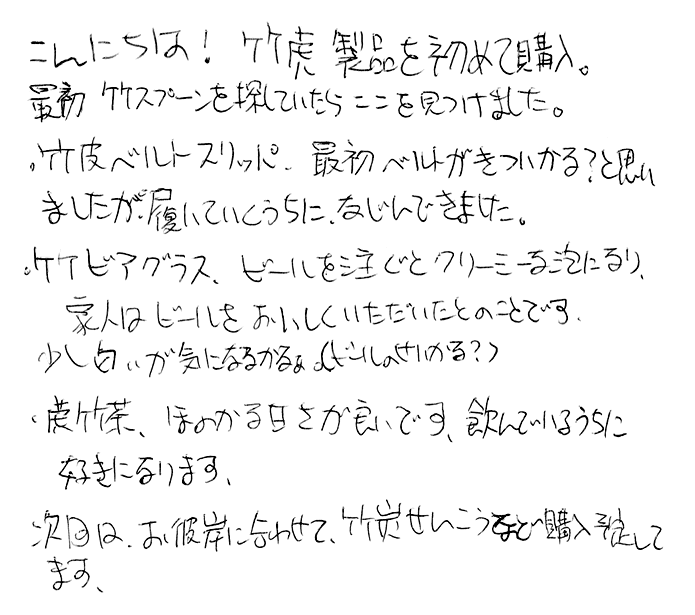 こんにちは! 竹虎 製品を初めて購入。
最初 竹スプーンを探していたらここを見つけました。
・竹皮ベルトスリッパ、最初ベルトがきついかな?と思い
ましたが、履いていくうちに、なじんできました。
・竹ビアグラス、ビールを注ぐとクリーミーな泡になり、
家人はビールをおいしくいただいたとのことです。
少し匂いが気になるかなぁ。(ビールのせいかな?)
・虎竹茶、ほのかな甘さが良いです、飲んでいるうちに
好きになります、
次回は、お彼岸に合わせて、竹炭せんこうなど購入予定して
ます、